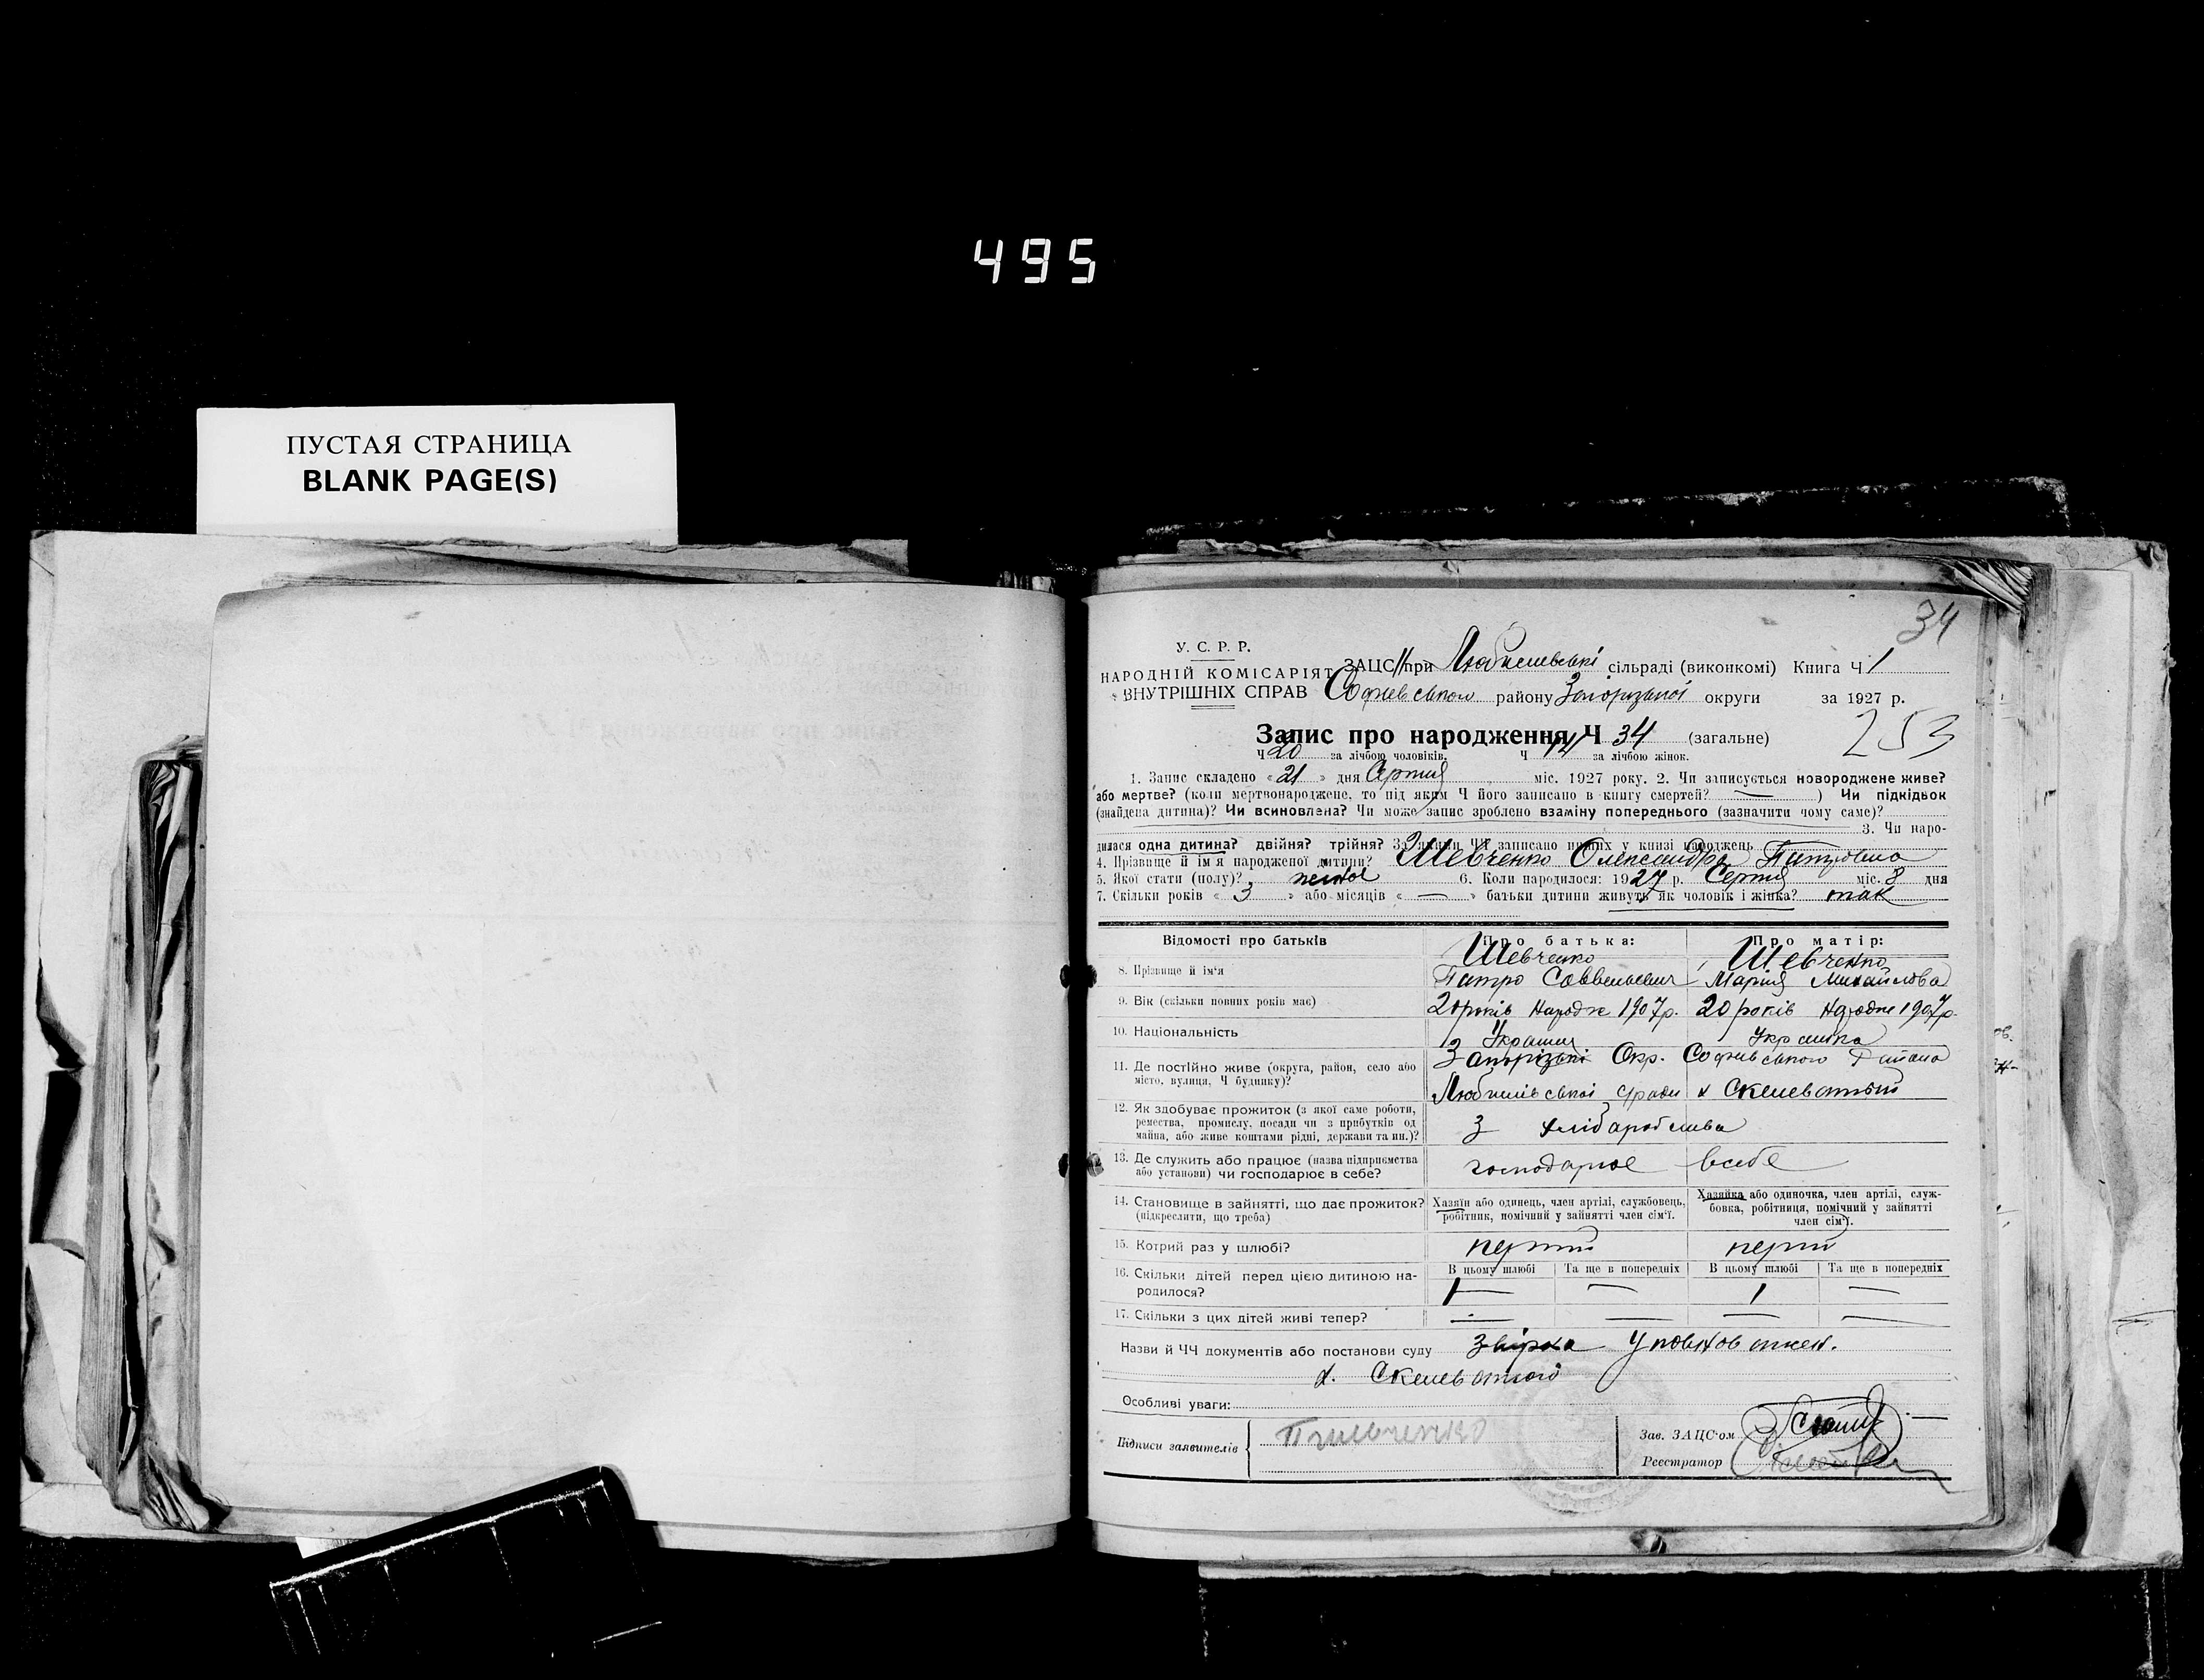 495
ПУСТАЯ СТРАНИЦА
BLANK PAGE(S)
34
У. С. Р. Р.
НАРОДНІЙ КОМІСАРІЯТ
ВНУТРІШНІХ СПРАВ
ЗАЦС при сільраді (виконкомі) Книга Ч 1
району округи за 1927 р.
253
Запис про народження Ч 34 (загальне)
Ч 20 за лічбою чоловіків. Ч 14 за лічбою жінок.
1. Запис складено « 21 » дня Серпня міс. 1927 року. 2. Чи записується новороджене живе?
або мертве? (коли мертвонароджене, то під яким Ч його записано в книгу смертей? — ) Чи підкідьок
(знайдена дитина)? Чи всиновлена? Чи може запис зроблено взаміну попереднього (зазначити чому саме)?
3. Чи наро-
дилася одна дитина? двійня? трійня? За якими ЧЧ записано инших у книзі народжень
4. Прізвище й ім'я народженої дитини? Шевченко Олександра Питровна
5. Якої стати (полу)? 6. Коли народилося: 1927 р. Серпня міс. 8 дня
7. Скільки років « 3 » або місяців « — » батьки дитини живуть як чоловік і жінка? так
Відомості про батьків Про батька: Про матір:
8. Прізвище й ім'я Шевченко Шевченко
Питро Саввельевич Мария Михайлова
9. Вік (скільки повних років має) 20 років Народж 1907 р. 20 років Народж 1907 р.
10. Національність Українка
11. Де постійно живе (округа, район, село або
місто, вулиця, Ч будинку)?
Запорізькі Окр. Софиевського
12. Як здобуває прожиток (з якої саме роботи,
ремества, промислу, посади чи з прибутків од
майна, або живе коштами рідні, держави та ин.)?
З хлібаробства
13. Де служить або працює (назва підприємства
або установи) чи господарює в себе?
господарює всебе
14. Становище в зайнятті, що дає прожиток?
(підкреслити, що треба)
Хазяїн або одинець, член артілі, службовець,
робітник, помічний у зайнятті член сім'ї.
Хазяйка або одиночка, член артілі, служ-
бовка, робітниця, помічний у зайнятті
член сім'ї.
15. Котрий раз у шлюбі?
16. Скільки дітей перед цією дитиною на-
родилося?
В цьому шлюбі Та ще в попередніх В цьому шлюбі Та ще в попередніх
1 — — 1 —
17. Скільки з цих дітей живі тепер? — — — —
Назви й ЧЧ документів або постанови суду
Особливі уваги:
Підписи заявителів
Зав. ЗАЦС'ом
Реєстратор